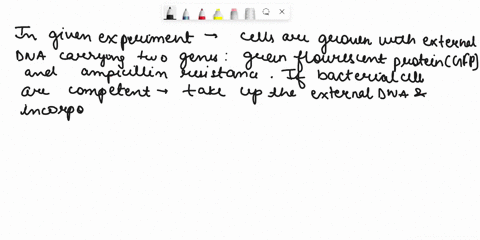 In given experiment → cells are grown with external
DNA carrying two genes: green flourescent protein (GFP)
and ampicillin resistance. If bacterial cells
are competent → take up the external DNA &
incorpo